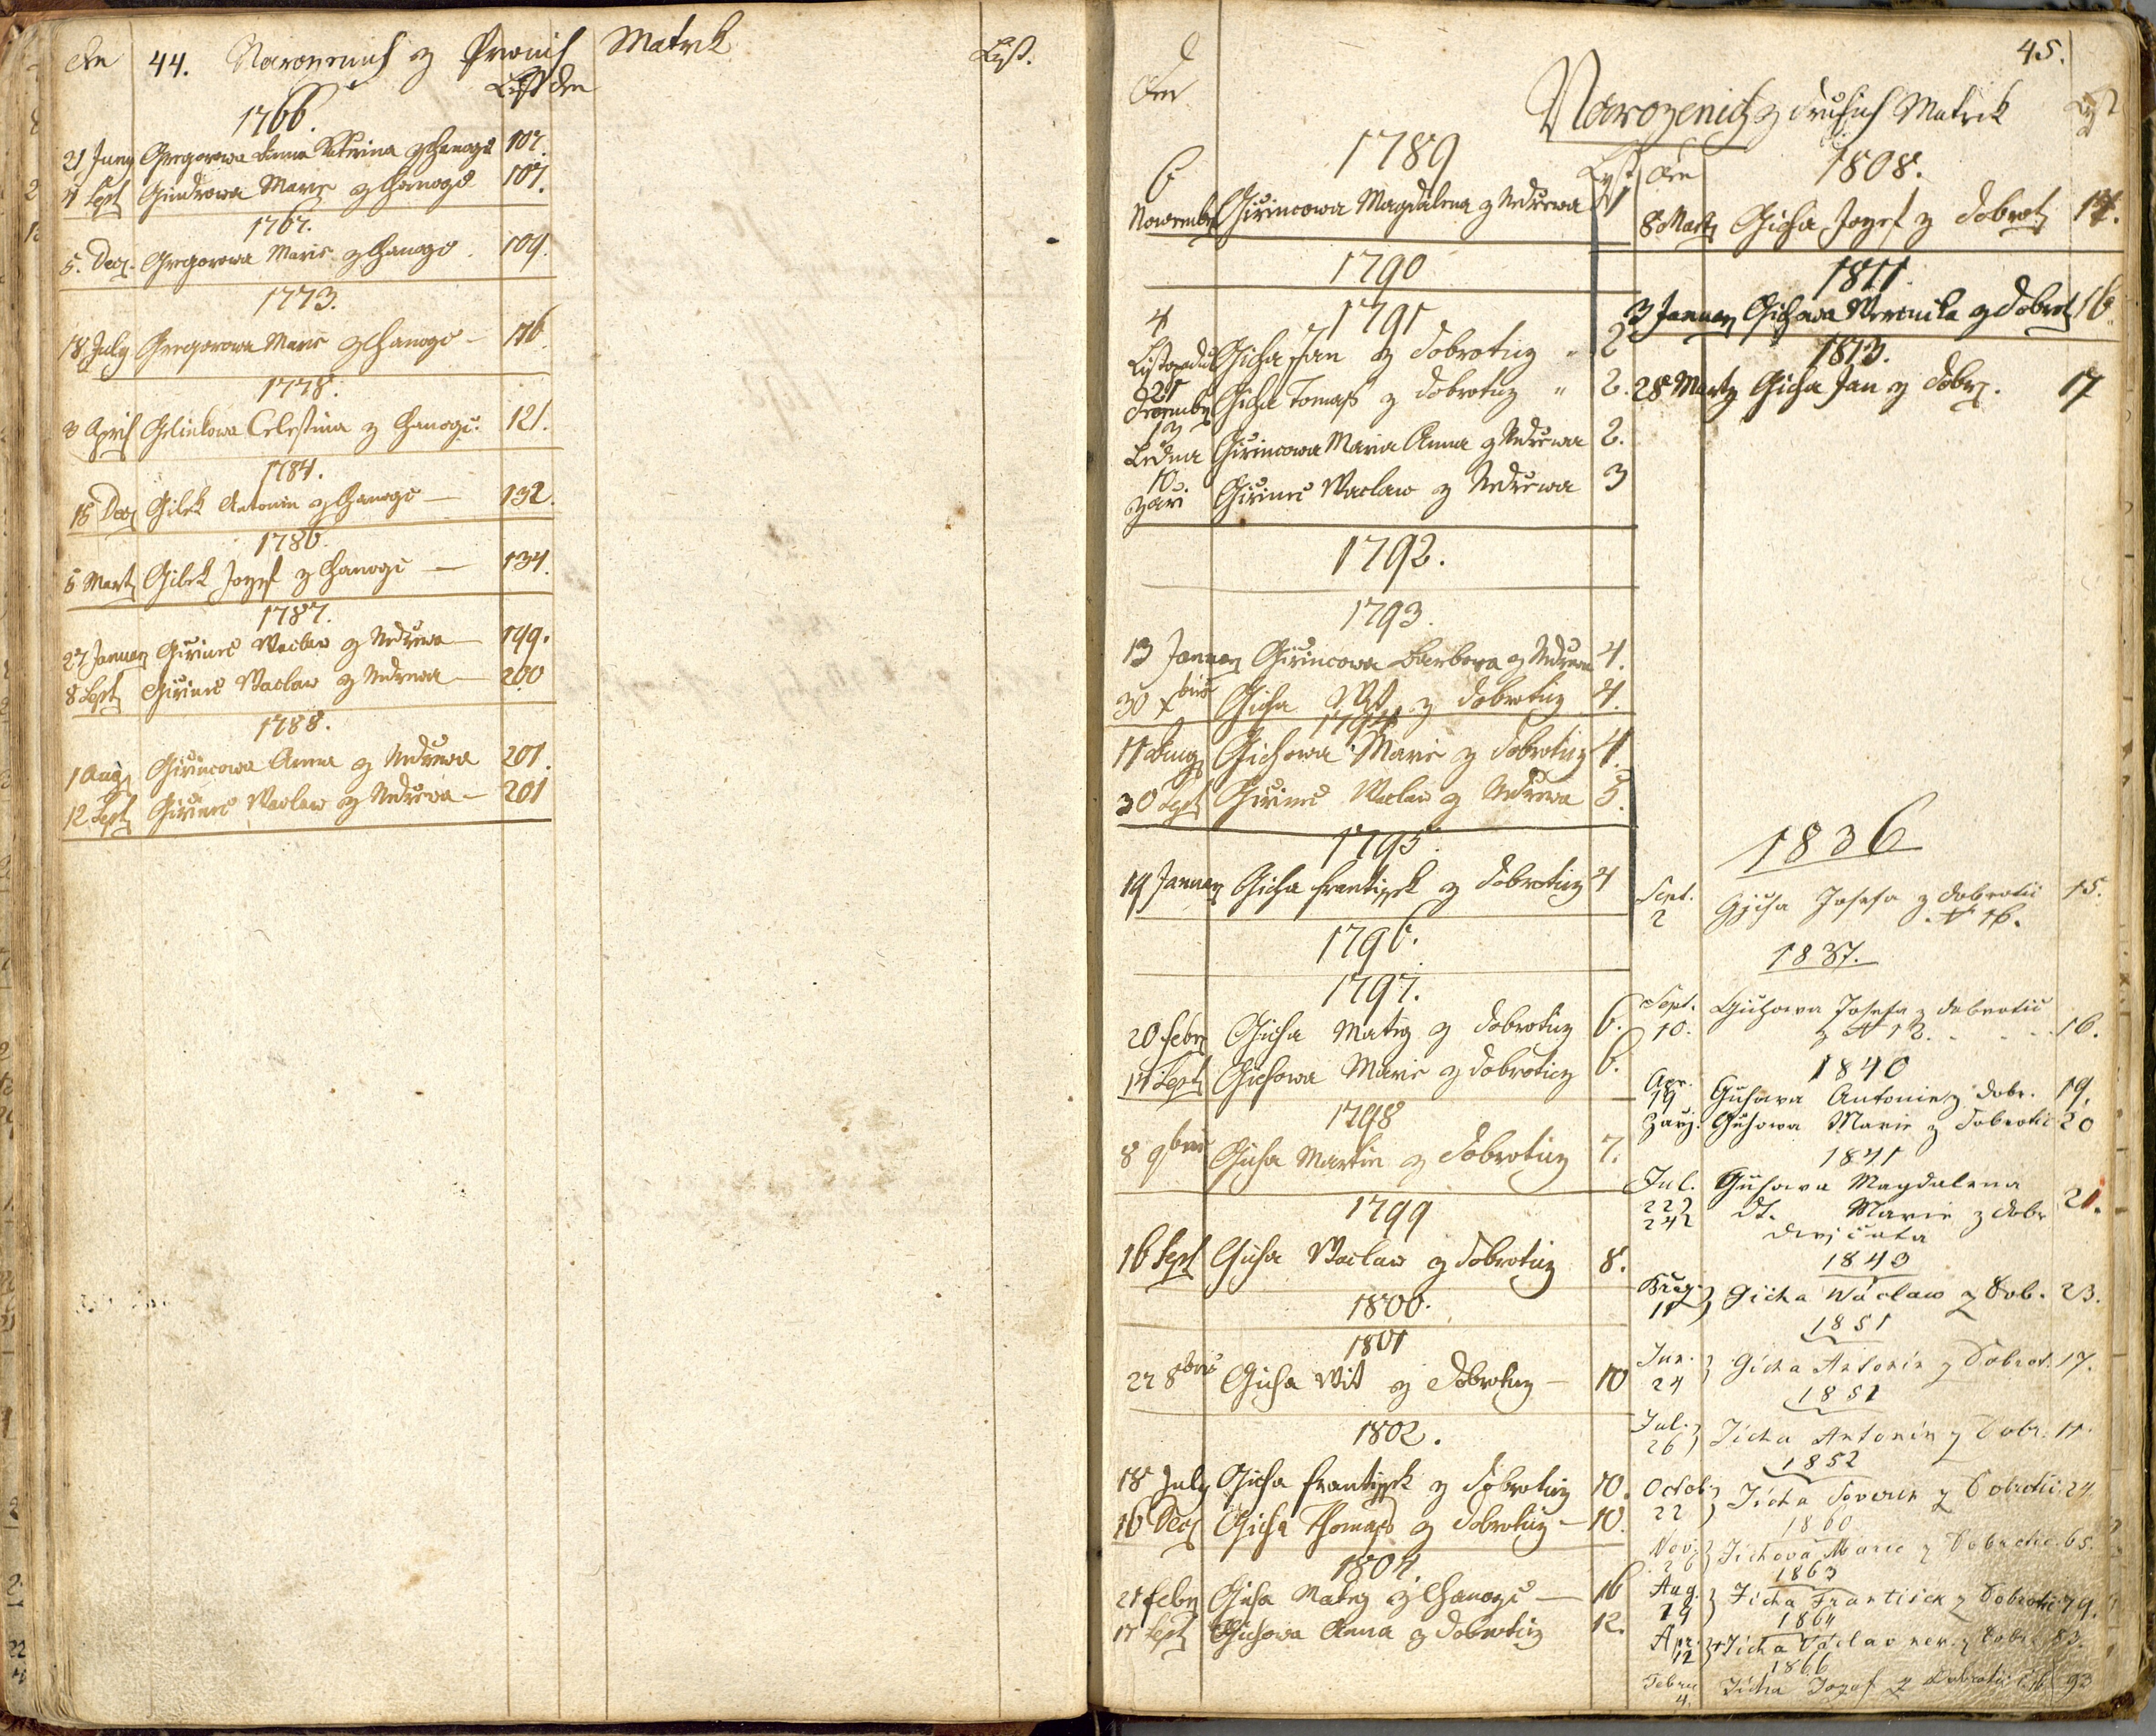 den 44. Narozenich z Prwnich Matrik List.
List den
1766.
21 Juny Gregorowa Anna Katerina z Chanogic 107.
11 Sept Gindrowa Marie z Chanogic 107.
1767.
5. Decz. Gregorowa Marie z Chanogic 109.
1773.
18 July Gregorowa Marie z Chanogic — 116
1778.
3 April Gelinkowa Celestina z Chanogic: 121.
1784.
15 Decz Gilek Antonin z Chanogic — 132.
1786.
5 Martz Gilek Jozef z Chanogic — 134.
1787.
27 January Girinec Waclaw z Nedrewa — 199.
8 Sept Girinec Waclaw z Nedrewa — 200
1788.
1 Aug Girincowa Anna z Nedrewa 201.
12 Sept Girinec Waclaw z Nedrewa — 201
45.
Den
Narozenich z druhich Matrik List
1789 List
6 Nowember Girincowa Magdalena z Nedrewa 1
1790
1791
4 Listopadu Gicha Jan z Dobroticz " 2
21 December Gicha Tomass z Dobroticz " 2.
12 Ledna Girincowa Maria Anna z Nedrewa 2.
10 Zari Girinec Waclaw z Nedrewa 3
1792.
1793.
13 January Girincowa Barbora z Nedrewa 4.
30 Xbris Gicha Wit z Dobroticz 4.
1794
11 Aug Gichowa Marie z Dobroticz 4.
30 Sept Girinec Waclaw z Nedrewa 5.
1795.
19 January Gicha Frantissek z Dobroticz 4
1796.
1797.
20 Febr Gicha Matig z Dobroticz 6.
14 Sept Gichowa Marie z Dobroticz 6.
1798
8 9bris Gicha Martin z Dobroticz 7.
1799
16 Sept Gicha Waclaw z Dobroticz 8.
1800.
1801
22 8bris Gicha Wit z Dobroticz — 10
1802.
18 July Gicha Frantissek z Dobroticz 10.
16 Decz Gicha Thomass z Dobroticz — 10.
1804
21 Febr Gicha Matig z Chanogic — 16
17 Sept Gichowa Anna z Dobroticz 12.
Den 1808.
8 Martz Gicha Jozef z Dobrot 14.
1811.
3 January Gichowa Weronika z Dobrot 16.
1813.
28 Martz Gicha Jan z Dobr. 17
1836
Sept. 2 Gjcha Josefa z Dobrotic 15.
N 16.
1837.
Sept. 10. Gichowa Josefa z Dobrotic
z N 12. . . . 16.
1840
Apr. 19 Gichowa Antonie z Dobr. 19.
Zarj. Gichowa Marie z Dobrotic 20
1841
Jul. 22 Gichowa Magdalena
24 dt. Marie z Dobr 21.
dwojčata
1843
11 Gicha Waclaw z Dob. 23.
1851
Jun. 24 Gicha Antonín z Dobrot. 17.
1851
Jul. 26 Jicha Antonín z Dobr. 17.
1852
Octob. 22 Jicha Severin z Dobrotic 24.
1860
Nov. 26 Jichová Marie z Dobrotic. 65.
1863
Aug. 19 Jicha František z Dobrotic 79.
1864
Apr. 12 Jicha Václav z Dobr. 83.
1866
Febru 4. Jicha Jozef z Dobrotic č. 16 93